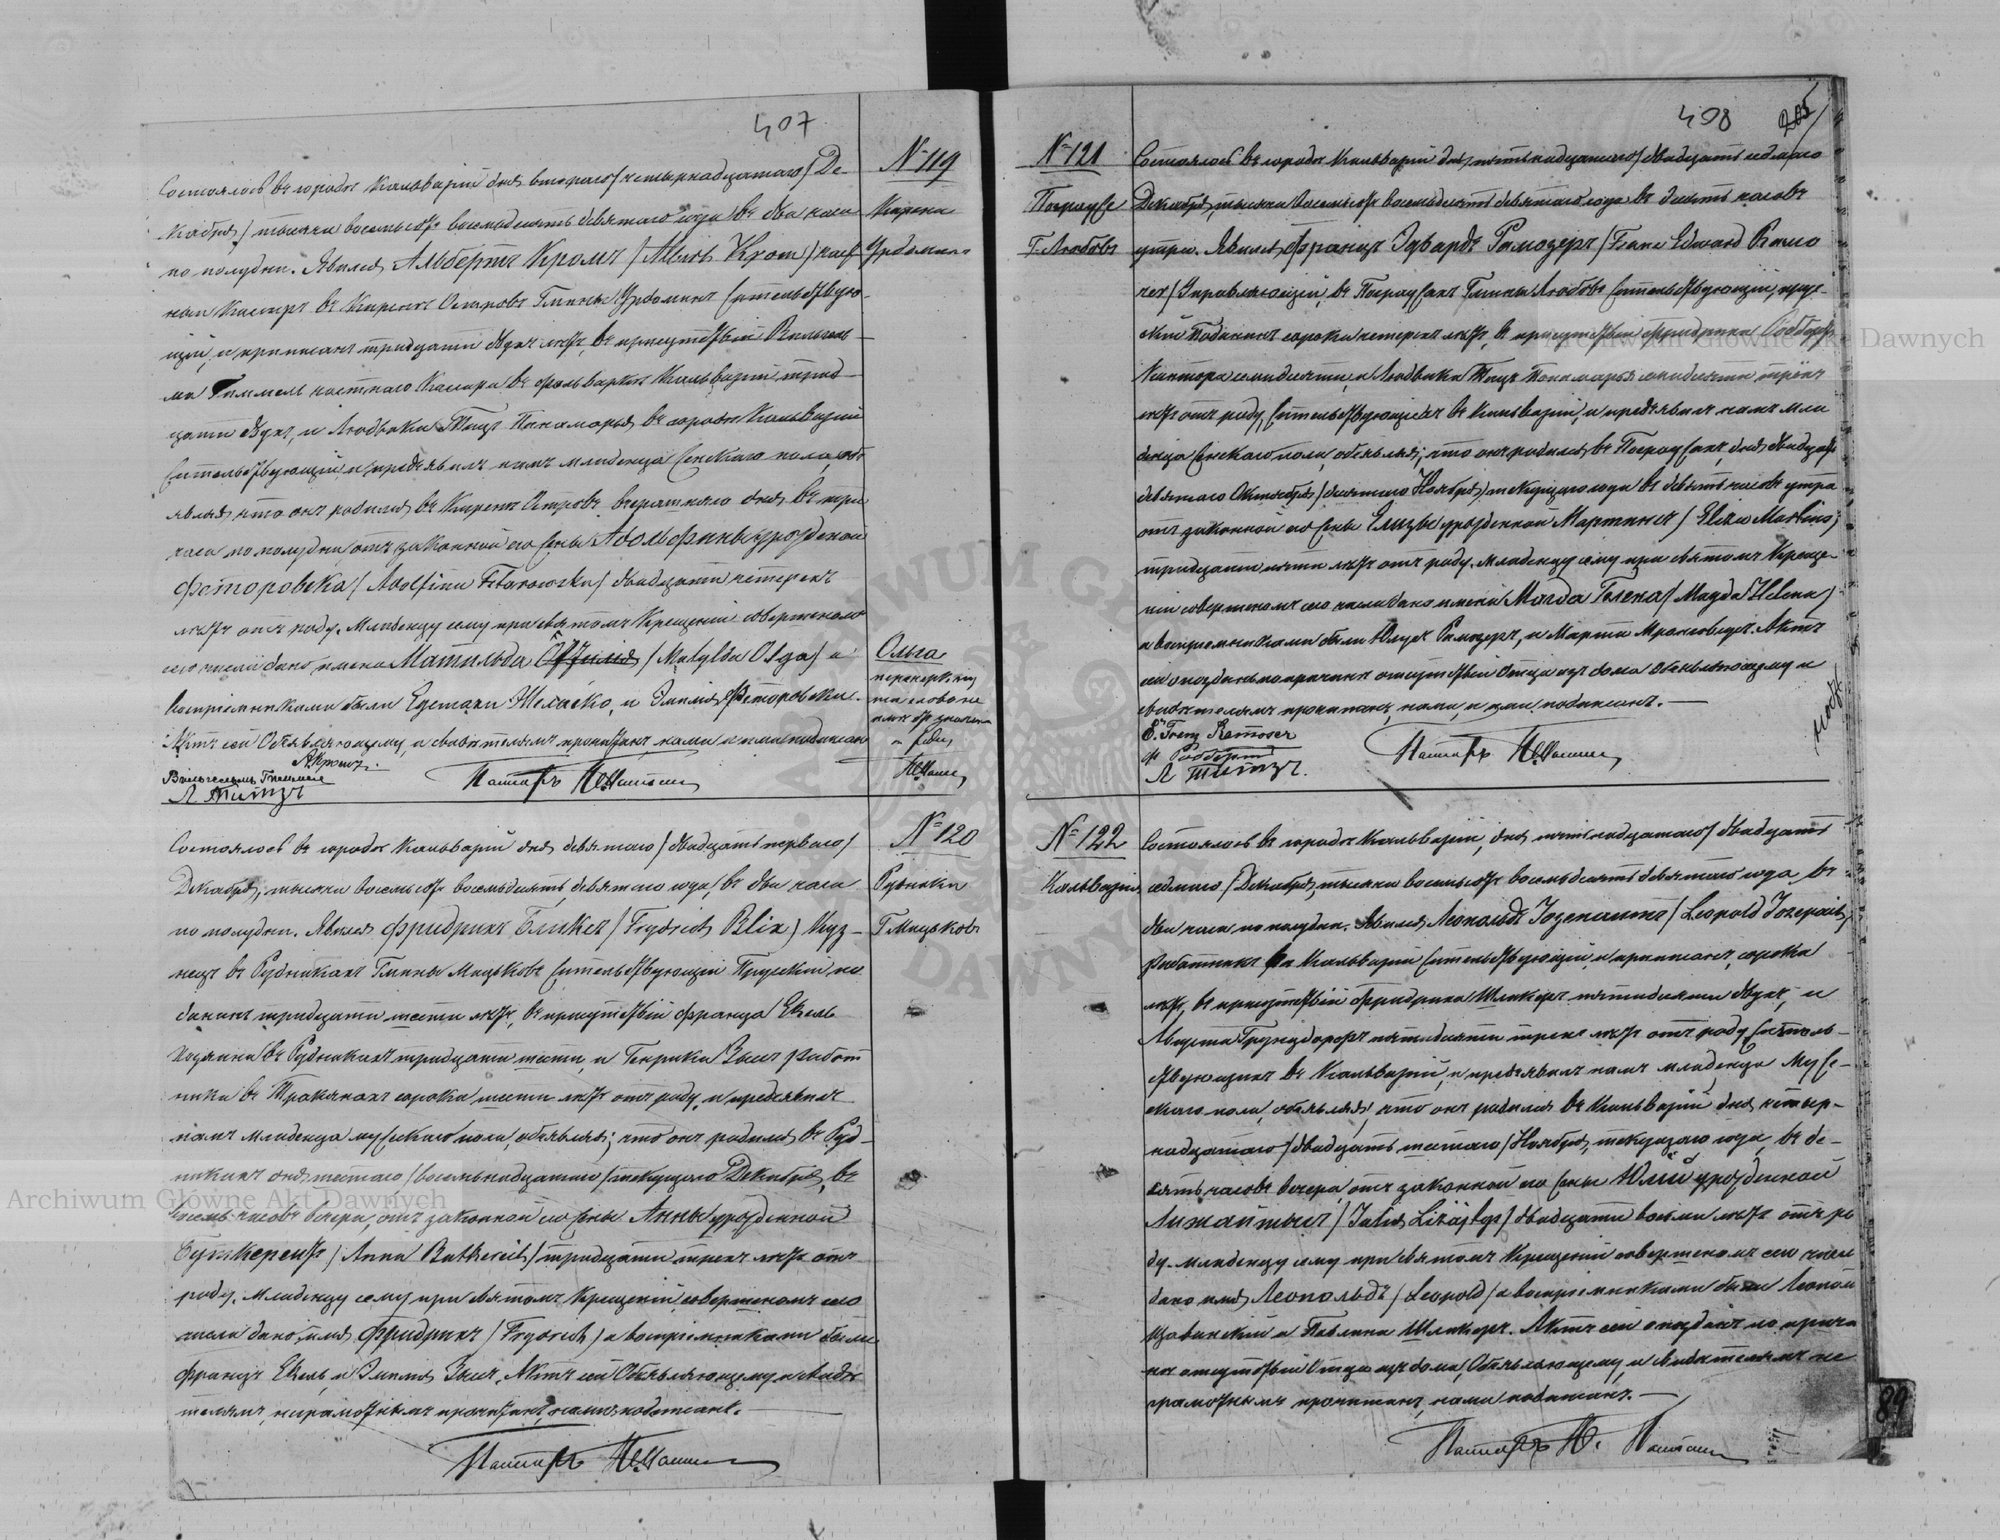 407
№ 119
Кирена
Урдомин
Состоялось въ городѣ Кальваріи дня втораго/четырнадцатаго/ Де-
кабря, тысяча восемьсотъ восемьдесятъ девятаго года въ два часа
по полудни. Явился Альбертъ Кромъ /Albert Krom/ част
ный Касиръ въ Гмины Урдоминъ жительствую-
щій, и приписанъ тридцати двухъ лѣтъ, въ присутствіи Вильгель-
ма Гиммель частнаго въ фольваркѣ Кальварія трид-
цати двухъ, и Людвика Титцъ Панамарья въ городѣ Кальваріи
жительствующій, и предъявилъ намъ младенца женскаго пола, объ
являя что онъ родился въ вчерашняго дня въ три
часа по полудни отъ законной его жены Адольфины урожденной
Фіторовска /Adolfina Fitorowska/ двадцати четырехъ
лѣтъ отъ роду. Младенцу сему при святомъ Крещеніи совершеномъ
сего числа дано имена Матильда /Matylda Olga/ а
воспріемниками были Густавъ Желаско, и Эмилія Фіторовска.
Актъ сей Объявляющему, и свидѣтелямъ прочитанъ, нами и ими подписанъ
А Кромъ.
Вильгельмъ Гиммель
Л Титцъ
Пасторъ
Ольга
перечеркну
та слово не
№ 120
Рудники
Г. Мацьковъ
Состоялось въ городѣ Кальваріи дня девятаго /двадцать перваго/
Декабря, тысяча восемьсотъ восемьдесятъ девятаго года, въ два часа
по полудни. Явился Фридрихъ Бликсъ /Frydrich Blix/ Куз-
нецъ въ Рудникахъ Гмины Мацьковъ жительствующій Прускій по
данный тридцати шести лѣтъ, въ присутствіи Франца Екель
хозяина въ Рудникахъ тридцати шести, и Генрика Зысъ работ
ника въ Тракянахъ сорока шести лѣтъ отъ роду, и предъявилъ
намъ младенца мужескаго пола, объявляя; что онъ родился въ Руд-
никахъ дня шестаго /восемьнадцатаго/ текущаго Декабря, въ
часовъ вечера, отъ законной его жены Анны урожденной
Буткерейтъ /Anna Butkereit/ тридцати трехъ лѣтъ отъ
роду. Младенцу сему при святомъ Крещеніи совершеномъ сего
числа дано имя Фридрихъ /Frydrich/ а воспріемниками были
Францъ Екель, и Эмилія Зысъ. Актъ сей Объявляющему и свидѣ
телямъ, неграмотнымъ прочитанъ, нами подписанъ.
Пасторъ
408
№ 121
Погрузе
Г. Любовъ
Состоялось въ городѣ Кальваріи дня пятьнадцатаго/двадцать седьмаго
Декабря, тысяча восемьсотъ восемьдесятъ девятаго года въ десять часовъ
утра. Явился Францъ Эдвардъ Рамозеръ /Franz Edward Ramo
zer/ Управляющій въ Гмины Любовъ жительствующій, прус-
скій Подданый сорока четырехъ лѣтъ, въ присутствіи Фридриха
Кантора семидесяти, и Людвика Титцъ Понамарья семидесяти трехъ
лѣтъ отъ роду, жительствующихъ въ Кальваріи, и предъявилъ намъ мла
денца женскаго пола, объявляя; что онъ родился въ дня двадцать
девятаго Октября /десятаго Ноября/ текущаго года въ девять часовъ утра
отъ законной его жены Елизы урожденной Мартинсъ /Eliza Martins/
тридцати пяти лѣтъ отъ роду. Младенцу сему при святомъ Креще-
ніи совершеномъ сего числа дано имена Магда Гелена /Magda Helena/
а воспріемниками были Рамозеръ, и Марта Актъ
сей опозданъ по причинѣ отсутствія Отца изъ дома Объявляющему и
свидѣтелямъ прочитанъ, нами, и ими подписанъ.
E. Franz Ramoser
Л Титцъ.
Пасторъ
№ 122
Кальварія
Состоялось въ городѣ Кальваріи, дня пятьнадцатаго /двадцать
седьмаго /Декабря, тысяча восемьсотъ восемьдесятъ девятаго года, въ
два часа по полудни. Явился Леопольдъ Іозепаитъ /Leopold Jozepait/
работникъ въ Кальваріи жительствующій, и приписанъ, сорока
лѣтъ, въ присутствіи Фридриха Шликеръ пятидесяти двухъ, и
Августа Грундфорфъ пятидесяти трехъ лѣтъ отъ роду житель-
ствующихъ въ Кальваріи, и предъявилъ намъ младенца муже-
скаго пола, объявляя, что онъ родился въ Кальваріи дня четыр-
надцатаго/двадцать шестаго/Ноября, текущаго года, въ де-
сять часовъ вечера, отъ законной его жены Юліи урожденной
Лижайтысъ /Julia Liżajtys/ двадцати восьми лѣтъ отъ ро
ду. Младенцу сему при святомъ Крещеніи совершеномъ сего числа
дано имя Леопольдъ /Leopold/ а воспріемниками были
и Павлина Шликеръ. Актъ сей опозданъ по причи
нѣ отсутствія Отца изъ дома, Объявляющему, и свидѣтелямъ не
грамотнымъ прочитанъ, нами подписанъ.
Пасторъ
89
Archiwum Główne Akt Dawnych
Archiwum Główne Akt Dawnych
ARCHIWUM GŁÓWNE AKT DAWNYCH